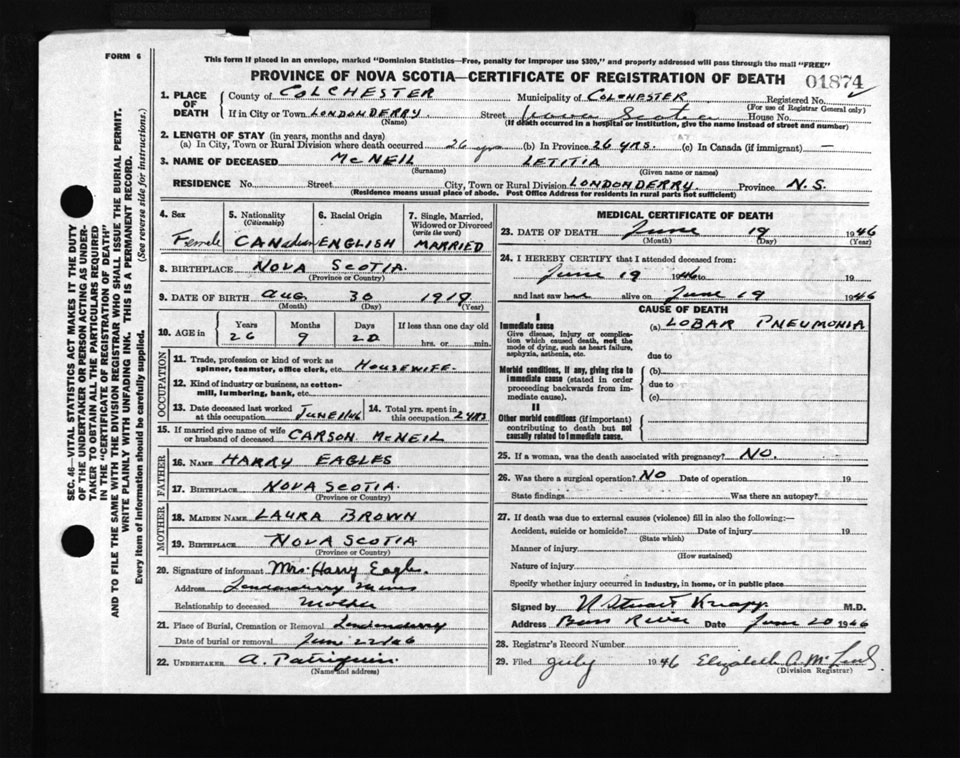 FORM 6
This form if placed in an envelope, marked "Dominion Statistics—Free, penalty for improper use $300," and properly addressed will pass through the mail "FREE"
PROVINCE OF NOVA SCOTIA—CERTIFICATE OF REGISTRATION OF DEATH
01874
1. PLACE OF DEATH
County of COLCHESTER Municipality of COLCHESTER Registered No.
(For use of Registrar General only)
If in City or Town LONDONDERRY. Street Nova Scotia House No.
(Name) (If death occurred in a hospital or institution, give the name instead of street and number)
2. LENGTH OF STAY (in years, months and days)
(a) In City, Town or Rural Division where death occurred 26 yrs (b) In Province 26 YRS. (c) In Canada (if immigrant) —
3. NAME OF DECEASED McNEIL LETITIA
(Surname) (Given name or names)
RESIDENCE No. Street City, Town or Rural Division LONDONDERRY. Province N.S.
(Residence means usual place of abode. Post Office Address for residents in rural parts not sufficient)
4. Sex Female
5. Nationality (Citizenship) CANadian
6. Racial Origin ENGLISH
7. Single, Married, Widowed or Divorced (write the word) MARRIED
8. BIRTHPLACE NOVA SCOTIA.
(Province or Country)
9. DATE OF BIRTH Aug. 30 1919
(Month) (Day) (Year)
10. AGE in Years Months Days If less than one day old
26 9 20 hrs. or min.
OCCUPATION
11. Trade, profession or kind of work as spinner, teamster, office clerk, etc. HOUSEWIFE.
12. Kind of industry or business, as cotton-mill, lumbering, bank, etc.
13. Date deceased last worked at this occupation JUNE 1/46
14. Total yrs. spent in this occupation 2 YRS
15. If married give name of wife or husband of deceased CARSON McNEIL
FATHER
16. NAME HARRY EAGLES
17. BIRTHPLACE NOVA SCOTIA.
(Province or Country)
MOTHER
18. MAIDEN NAME LAURA BROWN
19. BIRTHPLACE NOVA SCOTIA
(Province or Country)
20. Signature of informant Mrs. Harry Eagles.
Address Londonderry Mines
Relationship to deceased Mother
21. Place of Burial, Cremation or Removal Londonderry
Date of burial or removal June 22/46
22. UNDERTAKER A. Patriquin.
(Name and address)
MEDICAL CERTIFICATE OF DEATH
23. DATE OF DEATH June 19 1946
(Month) (Day) (Year)
24. I HEREBY CERTIFY that I attended deceased from:
June 19 1946 to 19
and last saw alive on June 19 1946
CAUSE OF DEATH
I
Immediate cause
Give disease, injury or complication which caused death, not the mode of dying, such as heart failure, asphyxia, asthenia, etc.
(a) LOBAR PNEUMONIA
due to
Morbid conditions, if any, giving rise to immediate cause (stated in order proceeding backwards from immediate cause).
(b)
due to
(c)
II
Other morbid conditions (if important) contributing to death but not causally related to immediate cause.
25. If a woman, was the death associated with pregnancy? NO.
26. Was there a surgical operation? NO Date of operation 19
State findings Was there an autopsy?
27. If death was due to external causes (violence) fill in also the following:—
Accident, suicide or homicide? Date of injury 19
(State which)
Manner of injury
(How sustained)
Nature of injury
Specify whether injury occurred in industry, in home, or in public place
Signed by N Stuart Knapp. M.D.
Address Bass River Date June 20 1946
28. Registrar's Record Number
29. Filed July 1946 Elizabeth A. McLeod
(Division Registrar)
SEC. 46—VITAL STATISTICS ACT MAKES IT THE DUTY
OF THE UNDERTAKER OR PERSON ACTING AS UNDER-
TAKER TO OBTAIN ALL THE PARTICULARS REQUIRED
IN THE "CERTIFICATE OF REGISTRATION OF DEATH"
AND TO FILE THE SAME WITH THE DIVISION REGISTRAR WHO SHALL ISSUE THE BURIAL PERMIT.
WRITE PLAINLY WITH UNFADING INK. THIS IS A PERMANENT RECORD.
Every item of information should be carefully supplied. (See reverse side for instructions.)